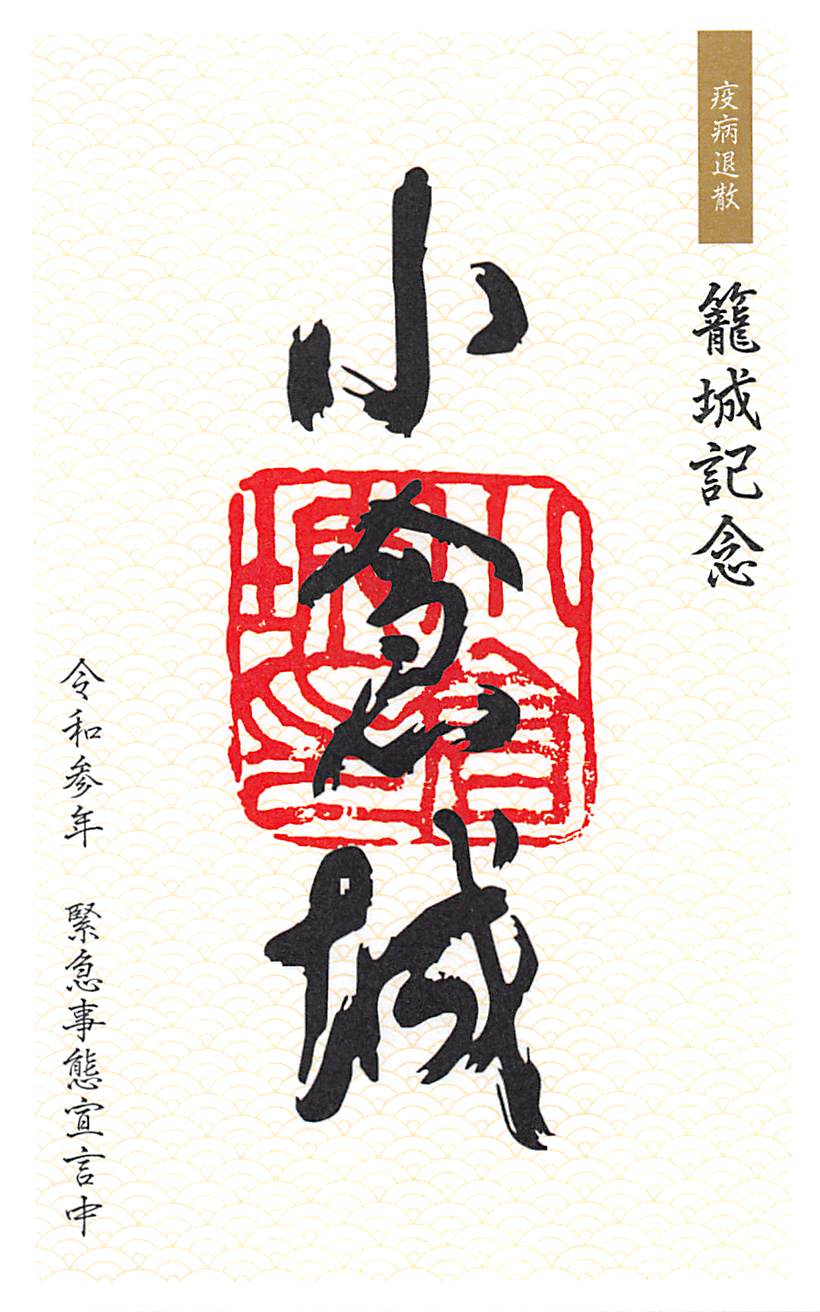 疫病退散
籠城記念
小倉城
小倉
城印
令和参年　緊急事態宣言中